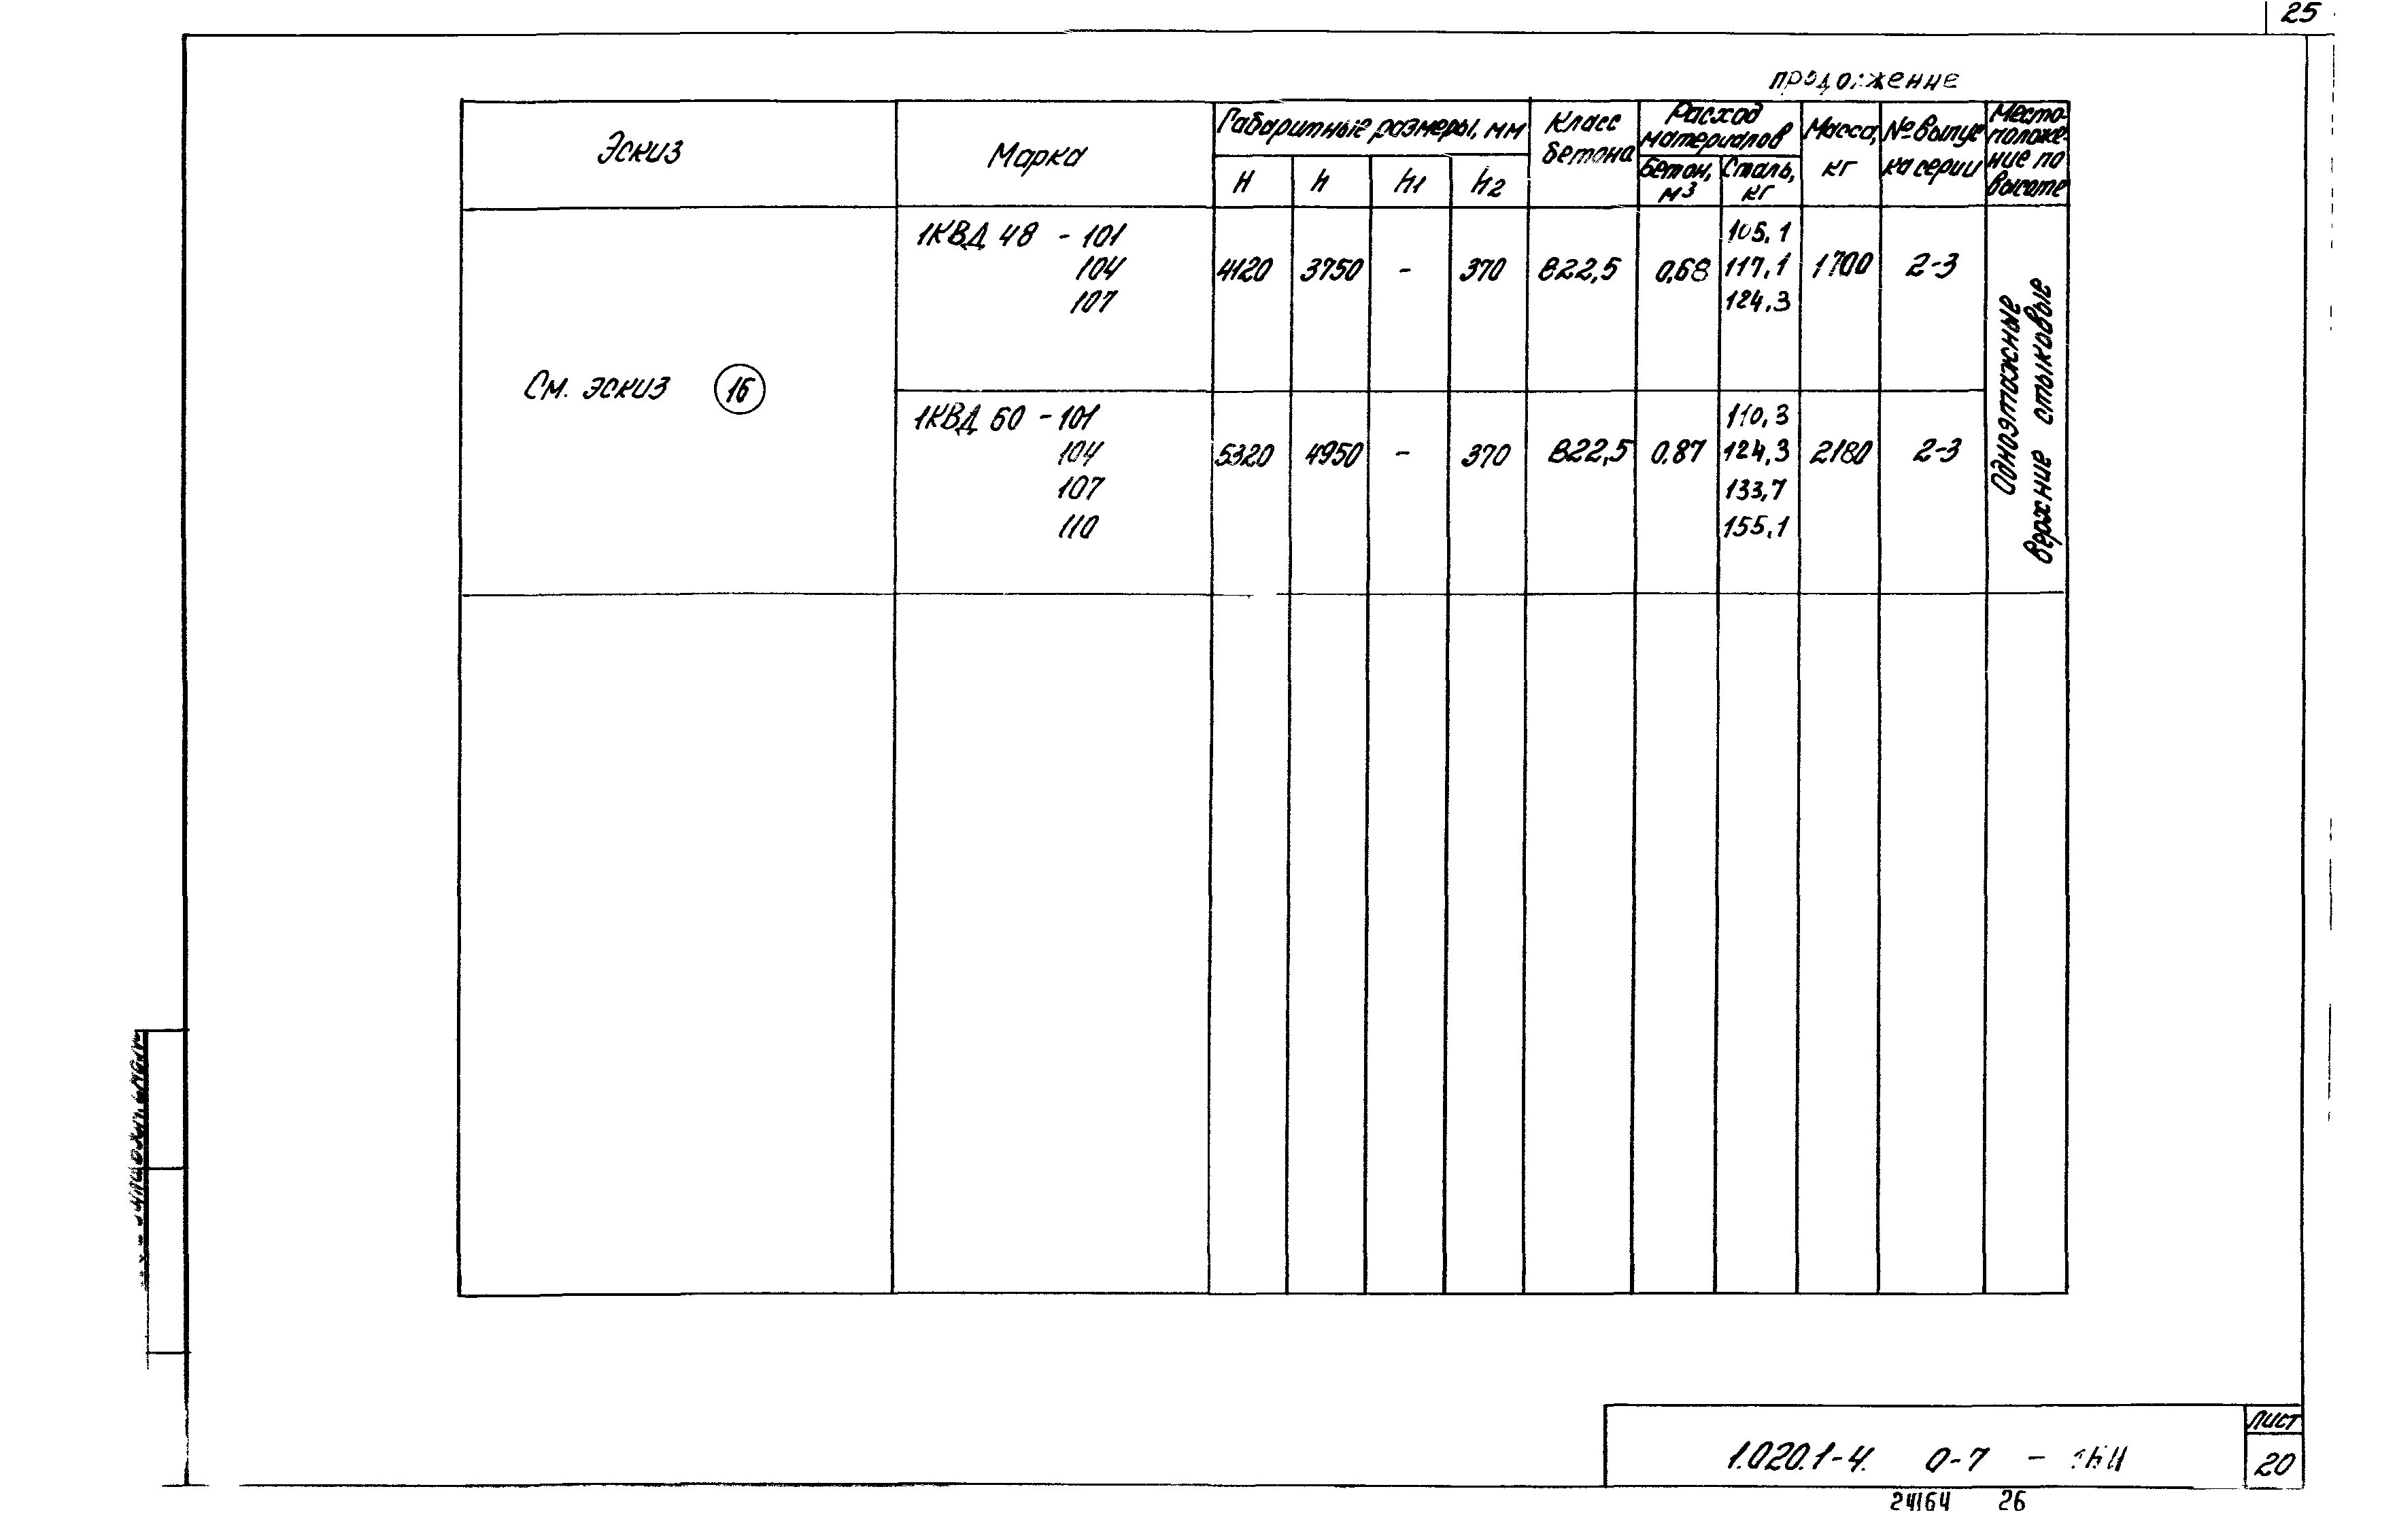 25
продолжение
Эскиз
Марка
Габаритные размеры, мм
H
h
h1
h2
Класс
бетона
Расход
материалов
Бетон,
м3
Сталь,
кг
Масса,
кг
№ выпус
ка серии
Место-
положе-
ние по
высоте
См. эскиз 16
1КВД 48 - 101
104
107
4120 3750 - 370 В22,5 0,68
105,1
117,1
124,3
1700 2-3
1КВД 60 - 101
104
107
110
5320 4950 - 370 В22,5 0.87
110,3
124,3
133,7
155,1
2180 2-3
Одноэтажные
верхние стыковые
1.020.1-4. 0-7 -
Лист
20
24164 26